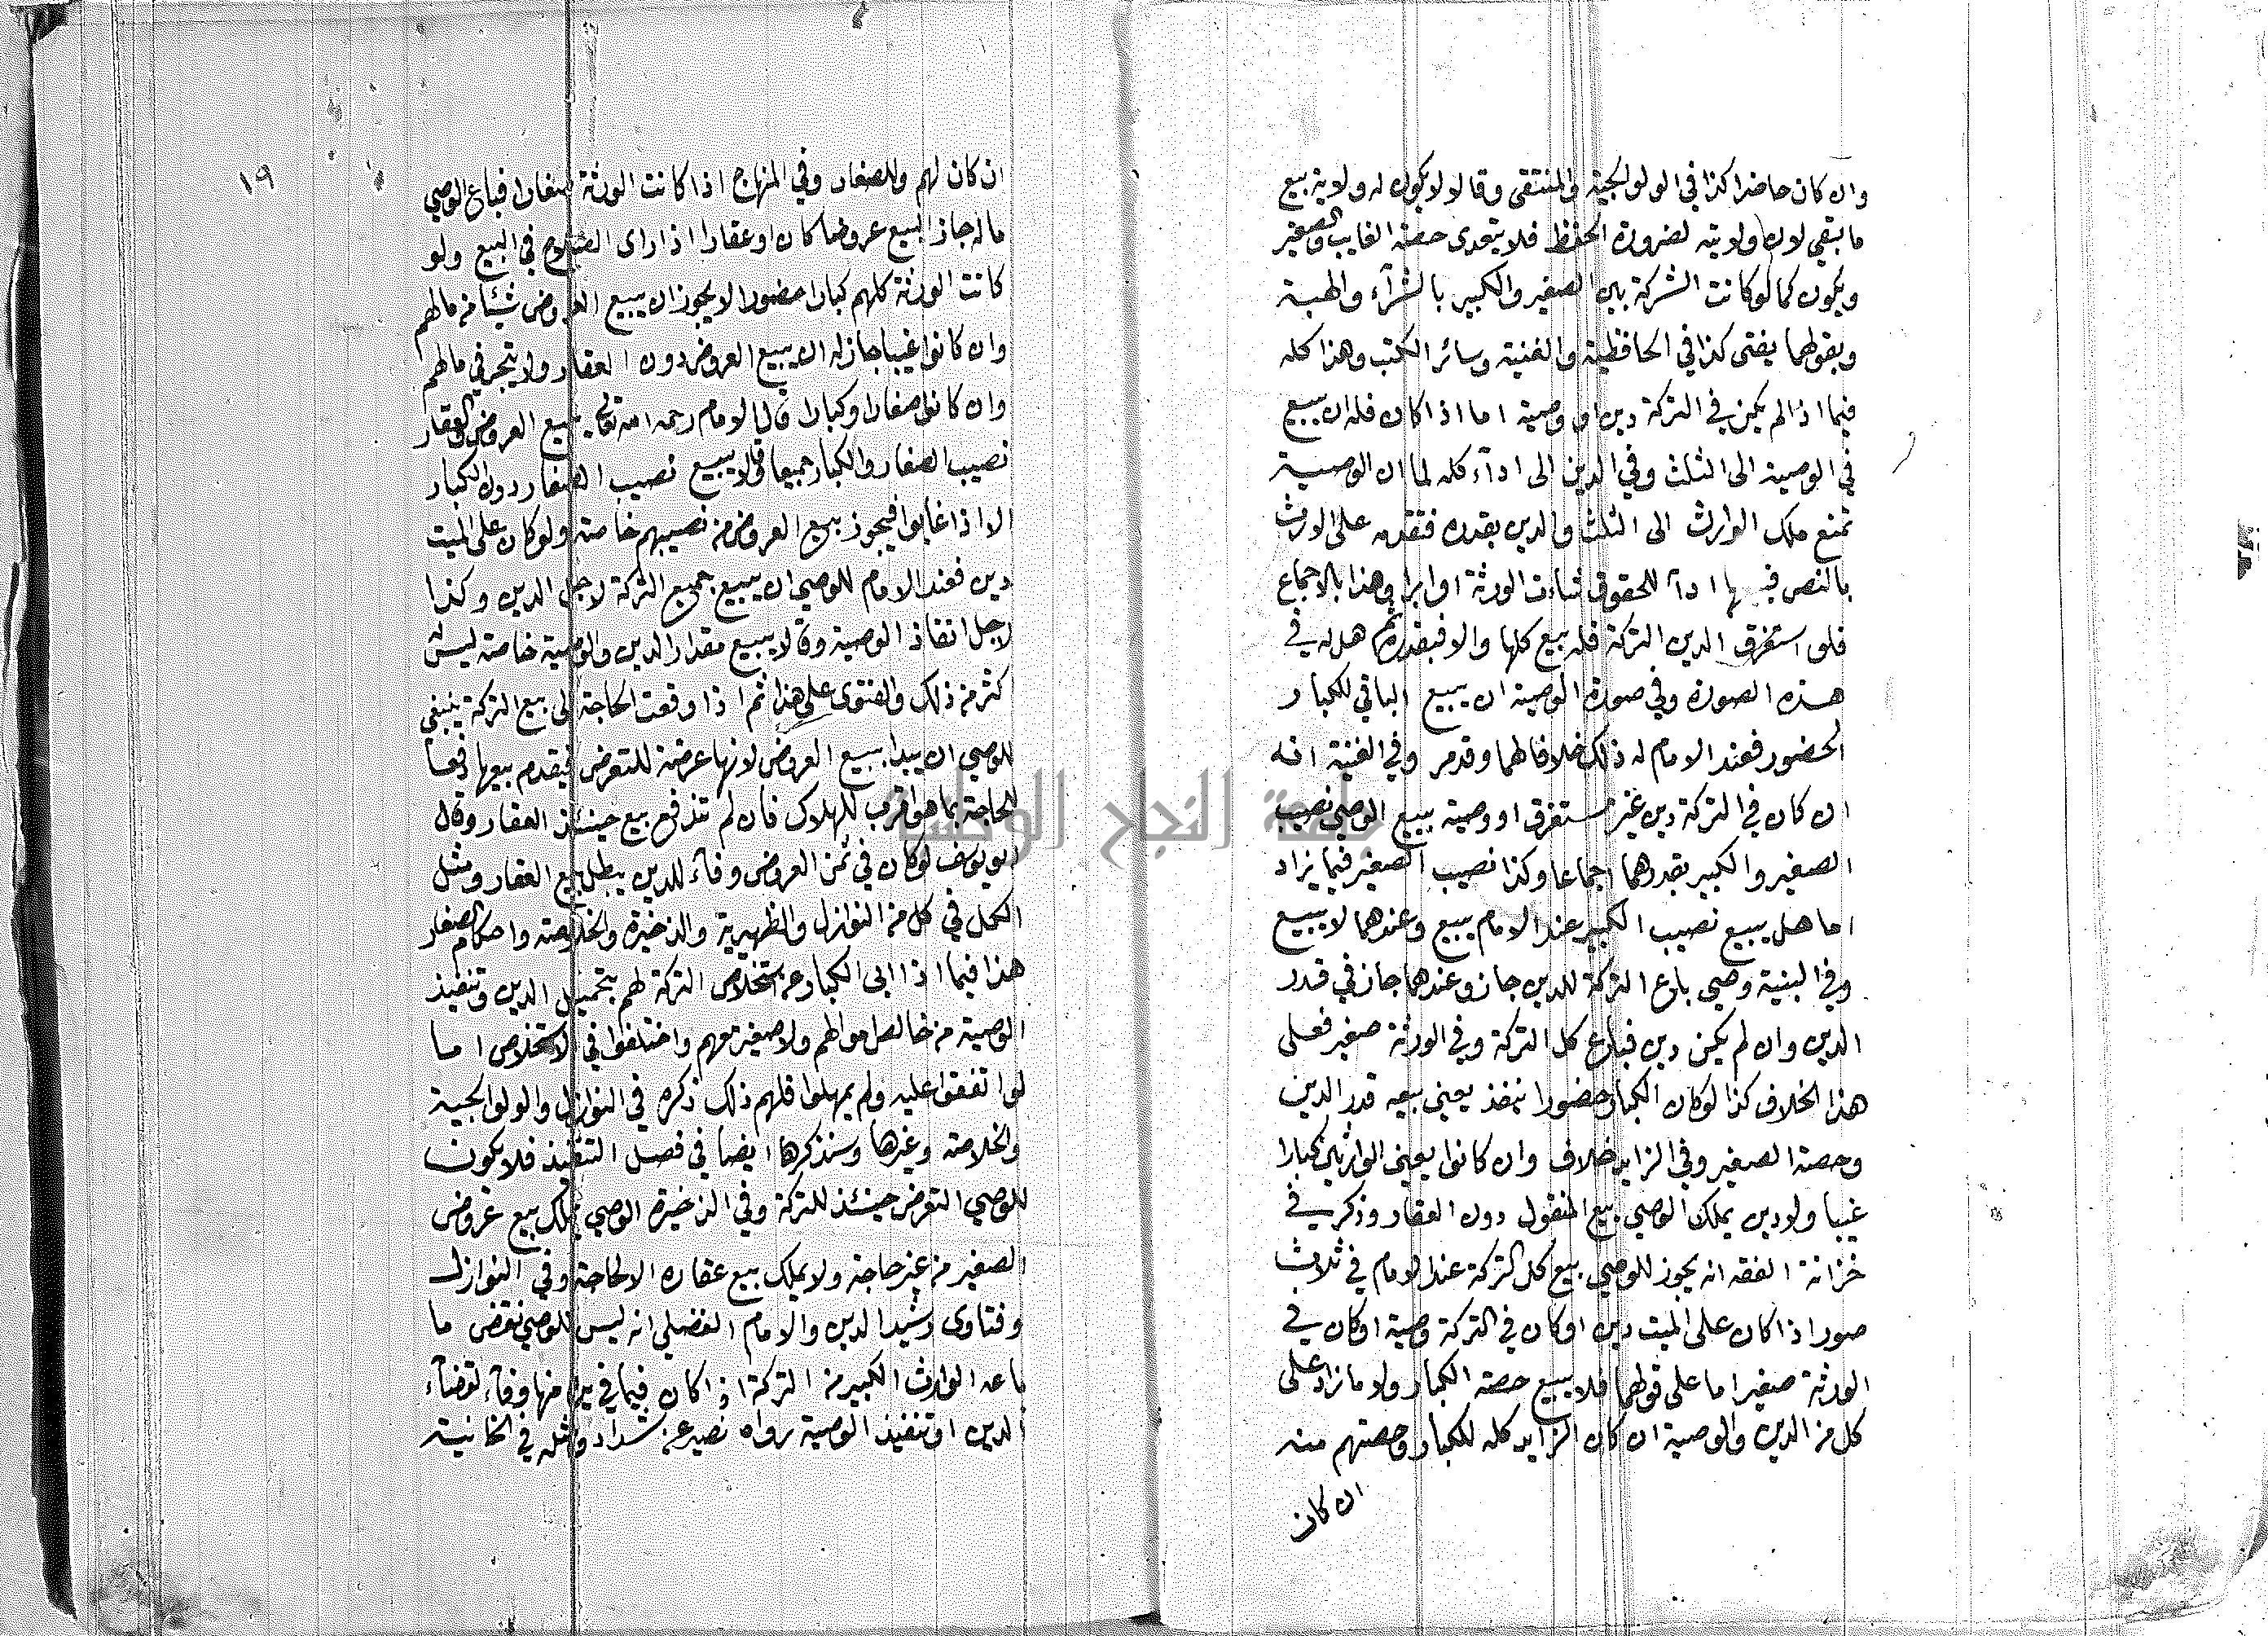 وان كان حاضرا كذا في الولوالجية والمنتقى وقالا لا يكون له ولاية بيع
ما بقي لان ولايته لضرورة الحفظ فلا يتعدى حصة الغايب والصغير
ويكون كما لو كانت الشركة بين الصغير والكبير بالشراء والهبة
وبقولهما يفتى كذا في الحافظية والغنية وسائر الكتب وهذا كله
فيما اذا لم يكن في التركة دين او وصية اما اذا كان فله ان يبيع
في الوصية الى الثلث وفي الدين الى ادآء كله لما ان الوصية
تمنع ملك الوارث الى الثلث والدين بقدره فتقدمه على الورث
بالنص ادآ للحقوق شاءت الورثة او ابوا وهذا بالاجماع
فلو استغرق الدين التركة فله بيع كلها والا فبقدره ثم هل له في
هذه الصورة وفي صورة الوصية ان يبيع الباقي للكبار
الحضور فعند الامام له ذلك خلافا لهما وقد مر وفي الغنية انه
ان كان في التركة دين غير مستغرق او وصية يبيع الوصي نصيب
الصغير والكبير بقدرهما اجماعا وكذا نصيب الصغير فيما يزاد
اما هل يبيع نصيب الكبير عند الامام يبيع وعندهما لا يبيع
وفي البنية وصي باع التركة للدين جاز وعندهما جاز في قدر
الدين وان لم يكن دين فباع كل التركة وفي الورثة صغير فعلى
هذا الخلاف كذا لو كان الكبار حضورا ينفذ يعني بيعه قدر الدين
وحصة الصغير وفي الزايد خلاف وان كانوا يعني الوارثين كبارا
غيبا ولا دين يملك الوصي بيع المنقول دون العقار وذكر في
خزانة الفقه انه يجوز للوصي بيع كل التركة عند الامام في ثلاث
صور اذا كان على الميت دين او كان في التركة وصية او كان في
الورثة صغير اما على قولهما فلا يبيع حصة الكبار ولا ما زاد على
كل من الدين والوصية ان كان الزايد كله للكبار وحصتهم منه
ان كان
١٩
ان كان لهم وللصغار وفي المنهاج اذا كانت الورثة صغارا فباع الوصي
ماله جاز البيع عروضا كان او عقارا اذا راى الصلاح في البيع ولو
كانت الورثة كلهم كبارا حضورا لا يجوز ان يبيع العروض شيئا من مالهم
وان كانوا غيبا جاز له ان يبيع العروض دون العقار ولا يتجر في مالهم
وان كانوا صغارا وكبارا قال الامام رحمه الله تعالى يبيع العروض والعقار
نصيب الصغار والكبار جميعا وقالا يبيع نصيب الصغار دون الكبار
الا اذا غابوا فيجوز بيع العروض من نصيبهم خاصة ولو كان على الميت
دين فعند الامام للوصي ان يبيع جميع التركة لاجل الدين وكذا
لاجل انفاذ الوصية وقالا يبيع مقدار الدين والوصية خاصة ليس
كثر من ذلك والفتوى على هذا ثم اذا وقعت الحاجة الى بيع التركة ينبغي
للوصي ان يبدا ببيع العروض لانها عرضة للتعرض فيقدم بيعها دفعا
للحاجة بما هو اقرب للهلاك فان لم تندفع بيع حينئذ العقار وقال
ابو يوسف لو كان في ثمن العروض وفاء للدين يبطل بيع العقار ومثل
الكل في كل من النوازل والظهيرية والذخيرة والخلاصة واحكام الصغار
هذا فيما اذا ابى الكبار عن استخلاص التركة لهم بتحميل الدين وتنفيذ
الوصية من خالص اموالهم ولا صغير معهم واختلفوا في الاستخلاص اما
لو اتفقوا عليه ولم يمهلوا فلهم ذلك ذكره في النوازل والولوالجية
والخلاصة وغيرها وسنذكرها ايضا في فصل التنفيذ فلا يكون
للوصي التعرض حينئذ للتركة وفي الذخيرة الوصي يملك بيع عروض
الصغير من غير حاجة ولا يملك بيع عقاره الا لحاجة وفي النوازل
وفتاوى رشيد الدين والامام الفضلي انه ليس للوصي نقض ما
باعه الوارث الكبير من التركة اذا كان فيما في يده منها وفاء لقضاء
الدين او تنفيذ الوصية رواه نصير عن شداد ومثله في الخانية
جامعة النجاح الوطنية